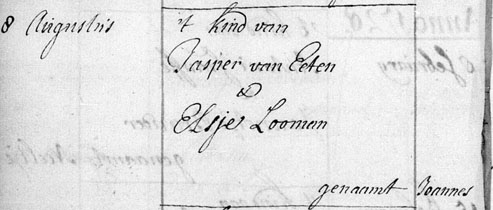 8 Augustus 't kind van
Jasper van Eeten
&
Elsje Looman
genaamt Joannes